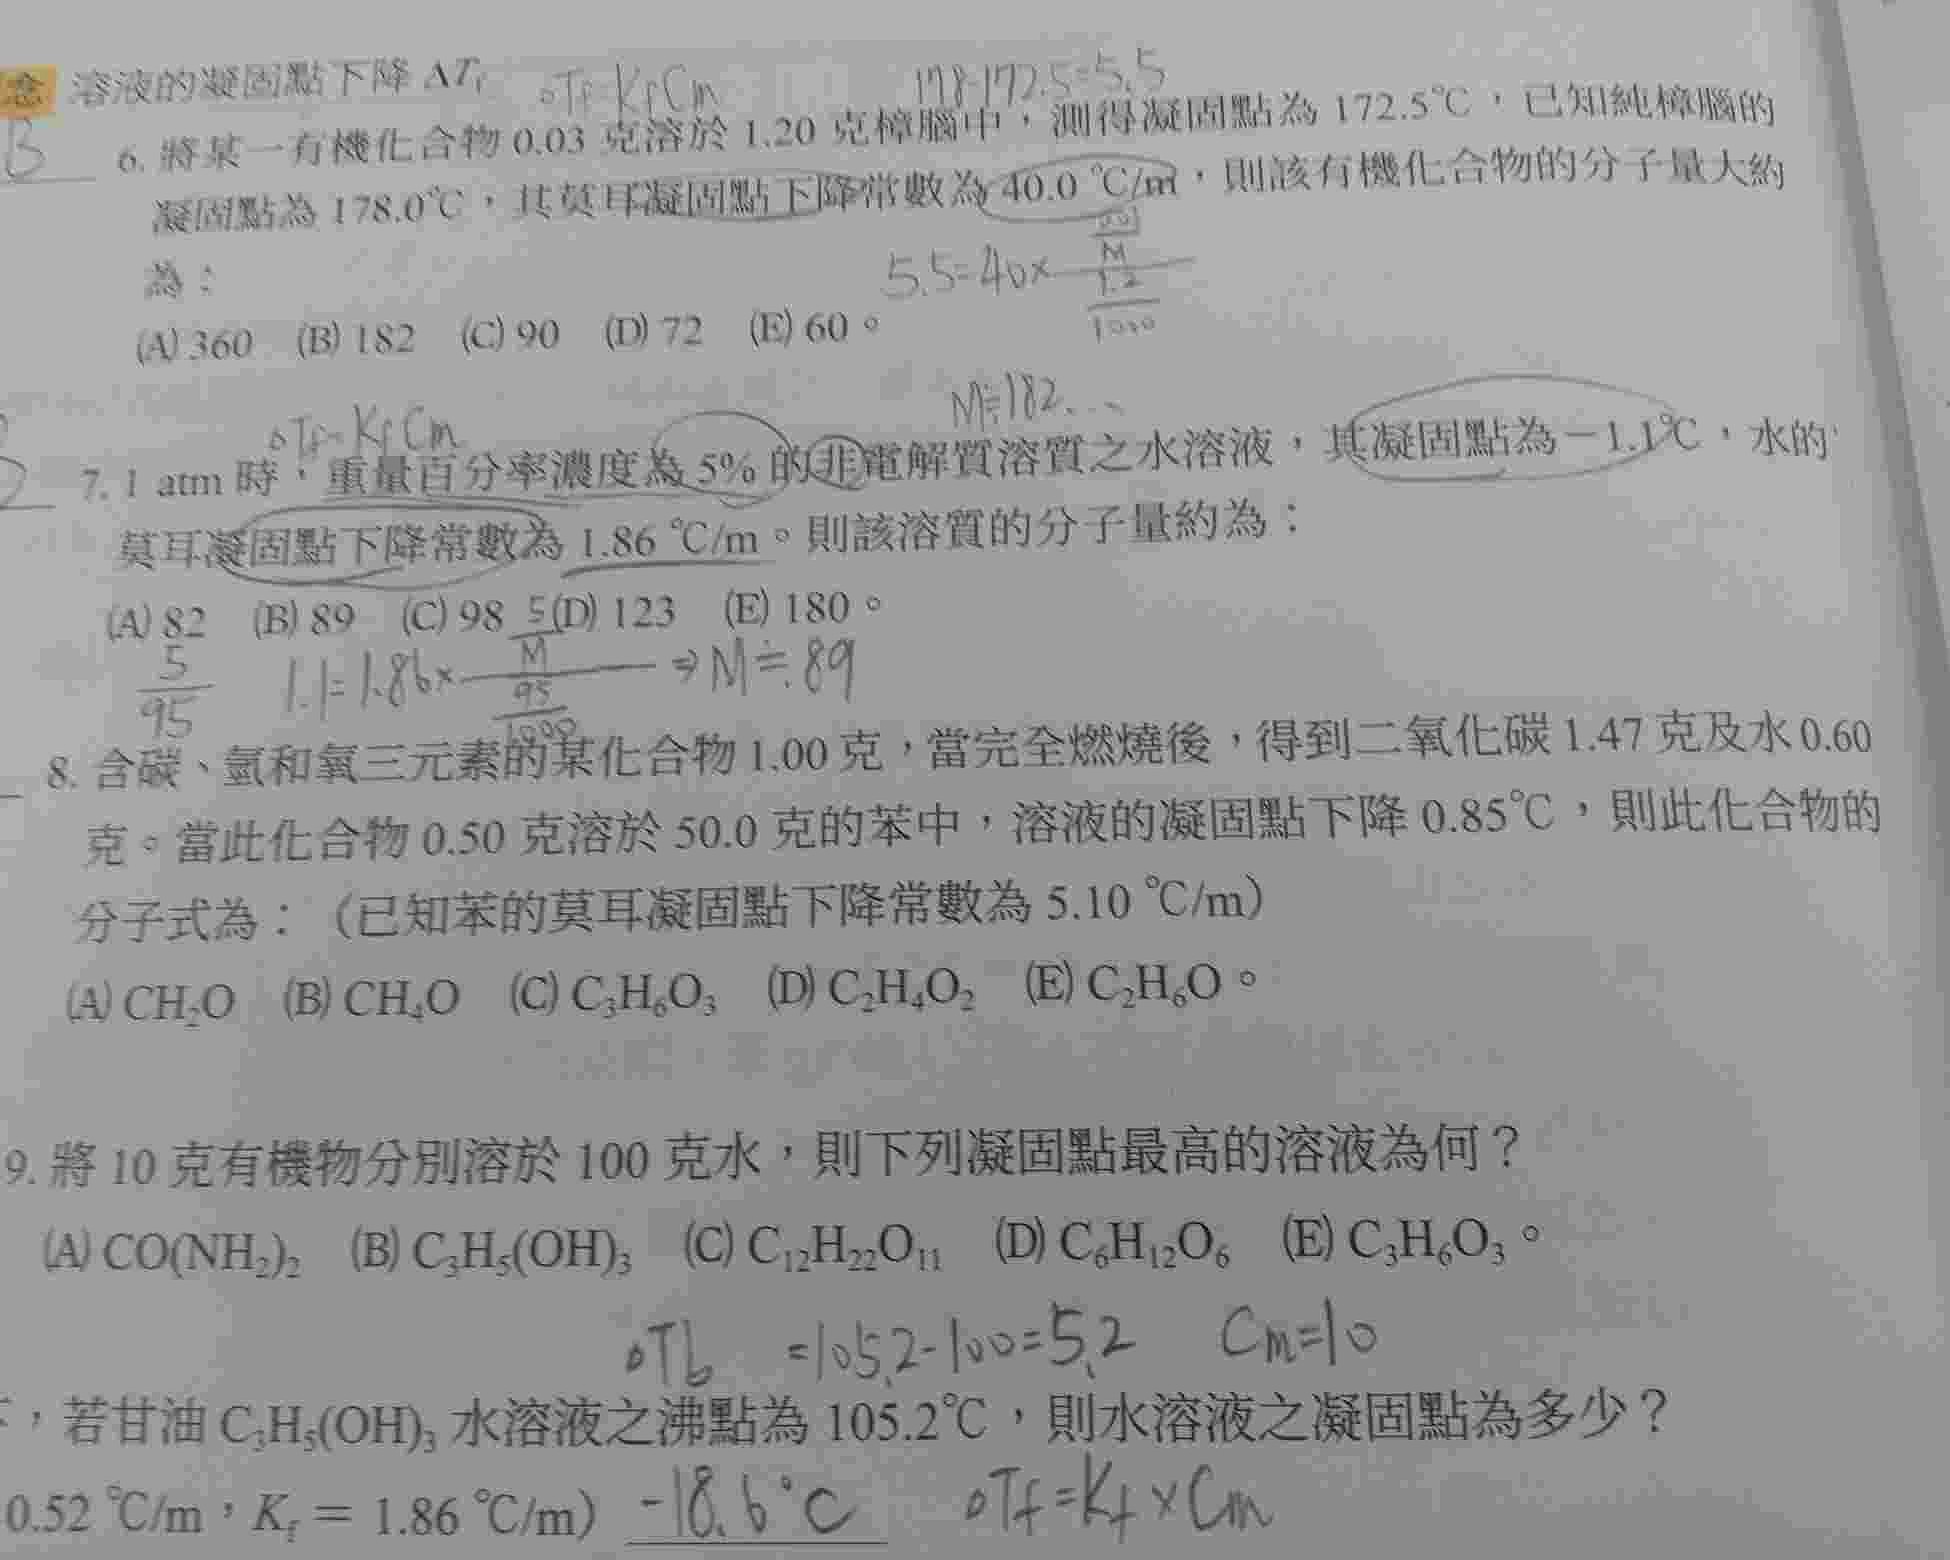 念 溶液的凝固點下降 ΔTf ΔTf=KfCm 178-172.5=5.5
B 6. 將某一有機化合物 0.03 克溶於 1.20 克樟腦中，測得凝固點為 172.5℃，已知純樟腦的
凝固點為 178.0℃，其莫耳凝固點下降常數為 40.0 ℃/m，則該有機化合物的分子量大約
為：
5.5=40× M 1.2 1000
(A) 360 (B) 182 (C) 90 (D) 72 (E) 60。
M≒182...
ΔTf=KfCm
7. 1 atm 時，重量百分率濃度為 5% 的非電解質溶質之水溶液，其凝固點為－1.1℃，水的
莫耳凝固點下降常數為 1.86 ℃/m。則該溶質的分子量約為：
(A) 82 (B) 89 (C) 98 (D) 123 (E) 180。
5/95 1.1=1.86× 5/M 95/1000 ⇒ M≒89
8. 含碳、氫和氧三元素的某化合物 1.00 克，當完全燃燒後，得到二氧化碳 1.47 克及水 0.60
克。當此化合物 0.50 克溶於 50.0 克的苯中，溶液的凝固點下降 0.85℃，則此化合物的
分子式為：（已知苯的莫耳凝固點下降常數為 5.10 ℃/m）
(A) CH₂O (B) CH₄O (C) C₃H₆O₃ (D) C₂H₄O₂ (E) C₂H₆O。
9. 將 10 克有機物分別溶於 100 克水，則下列凝固點最高的溶液為何？
(A) CO(NH₂)₂ (B) C₃H₅(OH)₃ (C) C₁₂H₂₂O₁₁ (D) C₆H₁₂O₆ (E) C₃H₆O₃。
ΔTb =105.2-100=5.2 Cm=10
，若甘油 C₃H₅(OH)₃ 水溶液之沸點為 105.2℃，則水溶液之凝固點為多少？
0.52 ℃/m，Kf = 1.86 ℃/m） -18.6℃ ΔTf=Kf×Cm